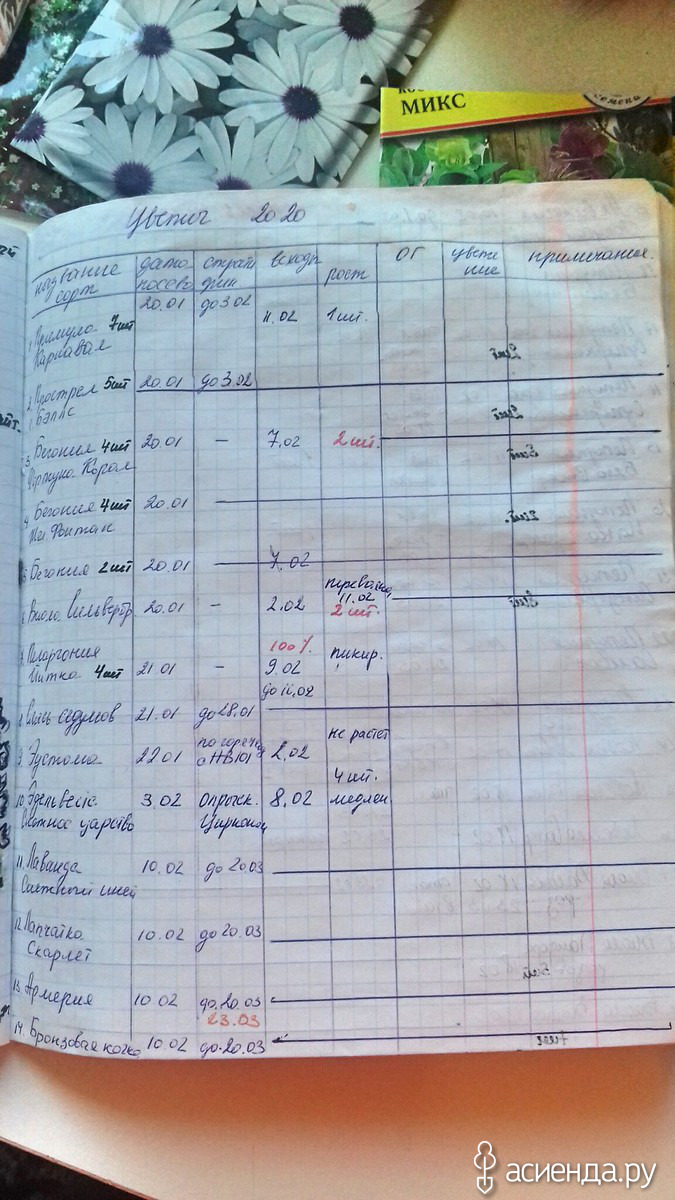 МИКС
семена
Цветы 2020
название сорт
дата посева
страти фик
всходы
рост
ОГ
цвете ние
примечания.
1. Примула 7шт 20.01 до 3.02 11.02 1 шт.
Карнавал
2. Прострел 5шт 20.01 до 3.02
Бэллс
3. Бегония 4шт 20.01 – 7.02 2 шт.
4. Бегония 4шт 20.01
Фонтан
5 Бегония 2шт 20.01 7.02
перевалка
11.02
6. Виола 20.01 – 2.02 2 шт.
100%
7. Пеларгония 21.01 – 9.02 пикир.
4шт до 11.02
8. Смесь седумов 21.01 до 28.01
9. Эустома 22.01 2.02 не растет
с НВ101
4 шт.
10. Эдельвейс 3.02 опрыск. 8.02 медлен
Снежное царство Цирконом
11. Лаванда 10.02 до 20.03
Снежный иней
12. Лапчатка 10.02 до 20.03
Скарлет
13. Армерия 10.02 до 20.03
23.03
14. Бронзовая кочка 10.02 до 20.03
асиенда.ру